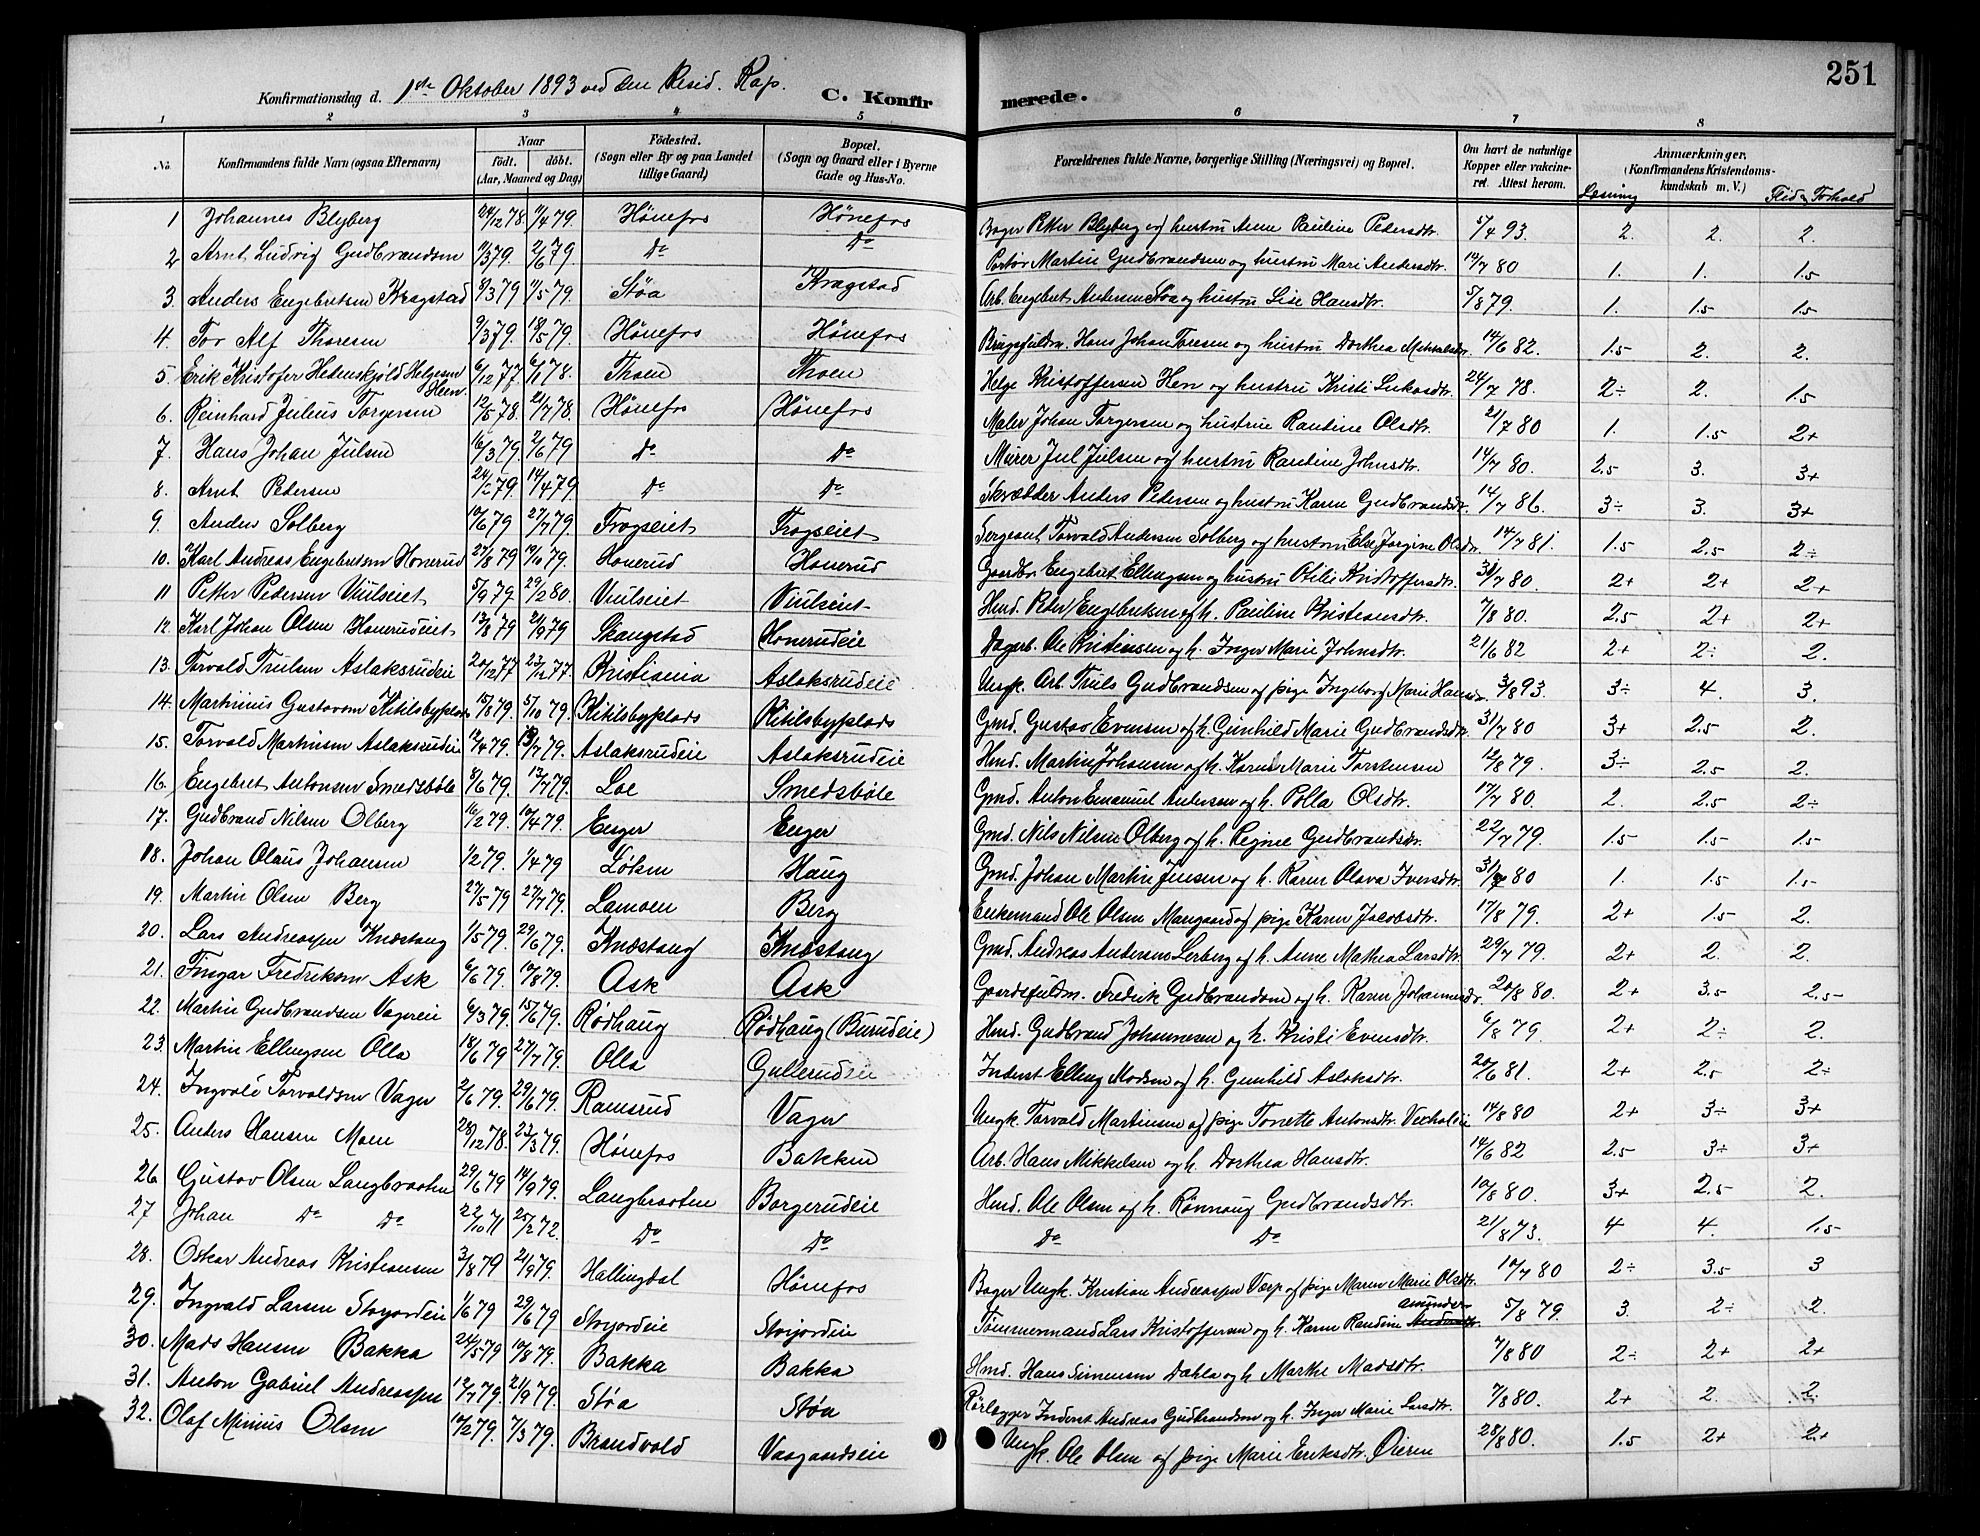 251
Konfirmationsdag d. 1ste Oktober 1893 ved den Resid. Kap. C. Konfirmerede.
1 2 3 4 5 6 7 8
No. Konfirmandens fulde Navn (ogsaa Efternavn) Naar født. døbt. (Aar, Maaned og Dag) Fødested. (Sogn eller By og paa Landet tillige Gaard) Bopæl. (Sogn og Gaard eller i Byerne Gade og Hus-No. Forældrenes fulde Navne, borgerlige Stilling (Næringsvei) og Bopæl. Om havt de naturlige Kopper eller vakcineret. Attest herom. Anmærkninger. (Konfirmandens Kristendomskundskab m. V.) Læsning Flid & Forhold
1 Johannes Blyberg 24/12 78 11/4 79. Hönefos Hönefos Bager Petter Blyberg og hustru Anne Pauline Pedersdtr. 5/4 93. 2. 2. 2.
2 Arnt Ludvig Gudbrandsen 11/3 79. 2/6 79. Do Do Portør Martin Gudbrandsen og hustru Mari Andersdtr. 14/7 80 1. 1. 1.5
3. Anders Engebretsen Kragstad 8/3 79 11/5 79. Støa Kragstad Arb. Engebret Andersen Støa og hustru Lise Hansdtr. 5/8 79. 1. 1.5 1.5
4. Tor Alf Thoresen 9/3 79. 18/5 79. Hönefos Hönefos Brugsfuldm. Hans Johan Toresen og hustru Dorthea 14/6 82. 1.5 2. 2.
5. Erik Kristofer Hedenskjöld Helgesen Heen. 6/12 77 6/1 78. Thoen Thoen Helge Kristoffersen Hen og hustru Kristi Lukasdtr. 24/7 78. 2÷ 2. 1.5
6. Reinhard Julius Torgersen 12/5 78. 21/7 78. Hönefos Hönefos Maler Johan Torgersen og hustrue Randine Olsdtr. 21/7 80 1. 1.5 2+
7. Hans Johan Julsen 16/3 79 2/6 79 Do Do Murer Jul Julsen og hustru Randine Johnsdtr. 14/7 80. 2.5 3. 3+
8. Arnt Pedersen 24/2 79. 14/4 79 Do Do Skrædder Anders Pedersen og hustru Karen Gudbrandsdtr. 14/7 86. 3÷ 3. 3+
9. Anders Solberg 10/6 79 27/7 79. Frogseiet Frogseiet Sergeant Torvald Andersen Solberg og hustru Else Jørgine Olsdtr. 14/7 81. 1.5 2.5 2÷
10. Karl Andreas Engebretsen Honerud 27/8 79 19/10 79. Honerud Honerud Gaardbr. Engebret Ellingsen og hustru Otilie Kristoffersdtr. 31/7 80. 2+ 2+ 2+
11 Petter Pedersen Viulseiet 5/9 79. 29/2 80. Viulseiet Viulseiet Hmd. Peder Engebretsen og h. Pauline Kristiansdtr. 7/8 80. 2.5 2+ 2+
12. Karl Johan Olsen Honerudeiet 13/8 79 21/9 79 Skaugstad Honerudeie Dagarb. Ole Kristensen og h. Inger Marie Johnsdtr. 21/6 82 2+ 2÷ 2.
13. Torvald Trulsen Aslaksrudeie 20/12 77 23/12 77. Kristiania Aslaksrudeie Ungk. Arb. Truls Gudbrandsen og pige Ingeborg Marie Hansdr. 3/8 93. 3÷ 4. 3.
14. Martinius Gustavsen Kitilsbyplads 15/8 79. 5/10 79. Kitilsbyplads Kitilsbyplads Gmd. Gustav Evensen og h. Gunhild Marie Gudbrandsdtr. 31/7 80 3+ 2.5 2.
15. Torvald Martinsen Aslaksrudeie 12/4 79. 13/7 79. Aslaksrudeie Aslaksrudeie Hmd. Martin Johansen og h. Karen Marie Torstensen 12/8 79. 3÷ 2.5 2.
16. Engebret Antonsen Smedsböle 8/6 79. 13/7 79. Loe Smedsböle Gmd. Anton Emanuel Andersen og h. Polla Olsdtr. 17/7 80. 2. 2.5 2÷
17. Gudbrand Nilsen Olberg 16/2 79. 10/4 79. Enger Enger Gmd. Nils Nilsen Olberg og h. Regine Gudbrandsdr. 22/7 79. 1.5 1.5 1.5
18. Johan Olaus Johansen 1/2 79. 1/4 79 Haug Gmd. Johan Martin Jensen og h. Karen Olava Iversdtr. 31/7 80 1. 1.5 1.5
19. Martin Olsen Berg 27/5 79 27/7 79. Lamoen Berg Enkemand Ole Olsen Moengaard og pige Karen Jacobsdtr. 17/8 79. 2+ 1.5 2.
20. Lars Andreassen Knestang 1/5 79. 29/6 79. Knestang Knestang Gmd. Andreas Andersen Lerberg og h. Anne Mathea Larsdtr. 29/7 79. 2+ 2. 2.
21. Fingar Fredriksen Ask 6/6 79. 10/8 79. Ask Ask Gaardsfuldm. Fredrik Gudbrandsen og h. Karen Johannesdr. 20/8 80. 2+ 3.5 2.5
22. Martin Gudbrandsen Vagereie 6/3 79. 15/6 79. Rødhaug Rødhaug (Burudeie) Hmd. Gudbrand Johannesen og h. Kristi Evensdtr. 6/8 79. 2+ 2÷ 2.
23. Martin Ellingsen Olla 18/6 79 27/7 79. Olla Gullerudeie Inderst Elling Madsen og h. Gunhild Aslaksdtr. 20/6 81. 2+ 2.5 2÷
24. Ingvald Torvaldsen Vager 2/6 79. 29/6 79. Ramsrud Vager Ungk. Torvald Martinsen og pige Tonette Antonsdtr. 14/8 80 2+ 3÷ 3+
25. Anders Hansen Moen 28/12 78. 23/3 79. Hönefos Bakken Arb. Hans Mikkelsen og h. Dorthea Hansdtr. 14/6 82 2.5 3÷ 3+
26 Gustav Olsen Langbraaten 29/6 79 14/9 79. Langbraaten Borgerudeie Hmd. Ole Olsen og h. Rønnaug Gudbrandsdtr. 10/8 80. 3+ 2.5 2.
27 Johan Do Do 22/10 71 25/2 72. Do Do Do Do 21/8 73. 4 4. 1.5
28. Oskar Andreas Kristiansen 3/8 79 21/9 79. Hallingdal Hönefos Bager Ungk. Kristian Andreassen Værp og pige Maren Marie Olsdtr. 10/7 80 2÷ 3.5 3
29. Ingvald Larsen Storjordeie 1/6 79 29/6 79 Storjordeie Storjordeie Tømmermand Lars Kristoffersen og h. Karen Randine Amunder 5/8 79. 3. 2÷ 2.
30. Mads Hansen Bakka 24/5 79 10/8 79. Bakka Bakka Hmd. Hans Simensen Dahla og h. Marthe Madsdtr. 7/8 80 2÷ 2+ 2+
31. Anton Gabriel Andreassen 12/7 79. 21/9 79. Støa Støa Rørlægger Inderst Andreas Gudbrandsen og h. Inger Marie Larsdtr. 7/8 80. 2+ 2. 2.
32. Olaf Minius Olsen 10/2 79. 7/3 79. Brandvold Vaagaardseie Ungk. Ole Olsen og pige Marie Eriksdtr. Øieren 28/8 80. 1.5 2+ 2+